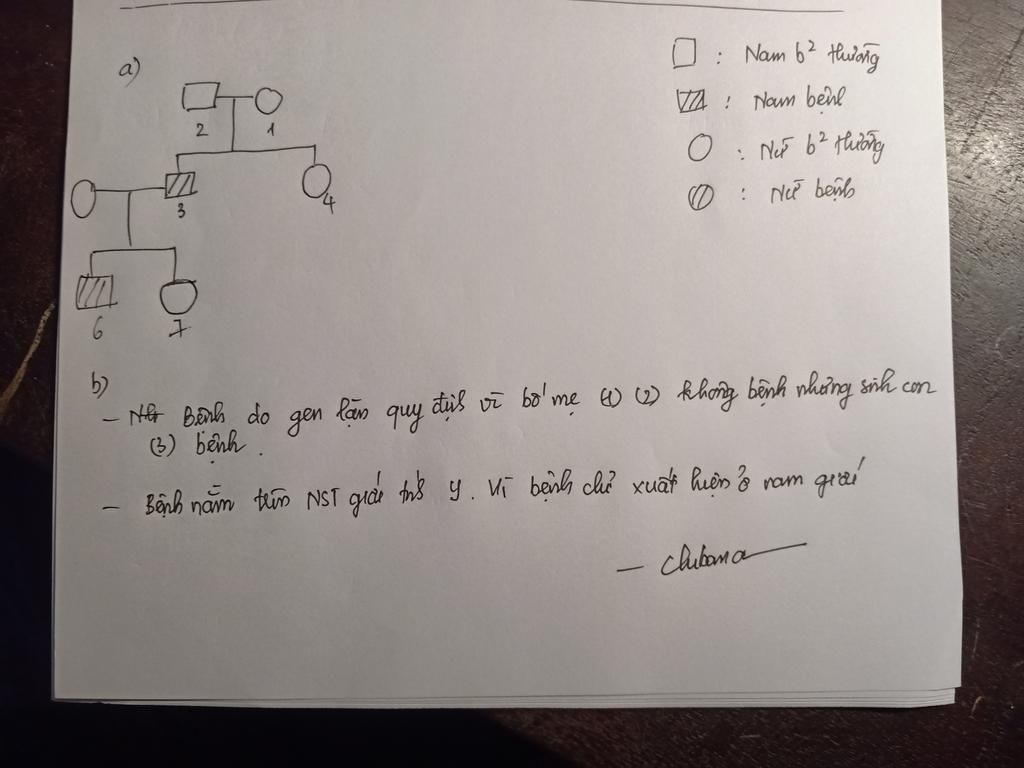 a)
□ : Nam b² thường
▨ : Nam bệnh
○ : Nữ b² thường
: Nữ bệnh
2 1
3 4
6 7
b)
- Bệnh do gen lặn quy định vì bố mẹ (1) (2) không bệnh nhưng sinh con
(3) bệnh.
- Bệnh nằm trên NST giới tính Y. Vì bệnh chỉ xuất hiện ở nam giới